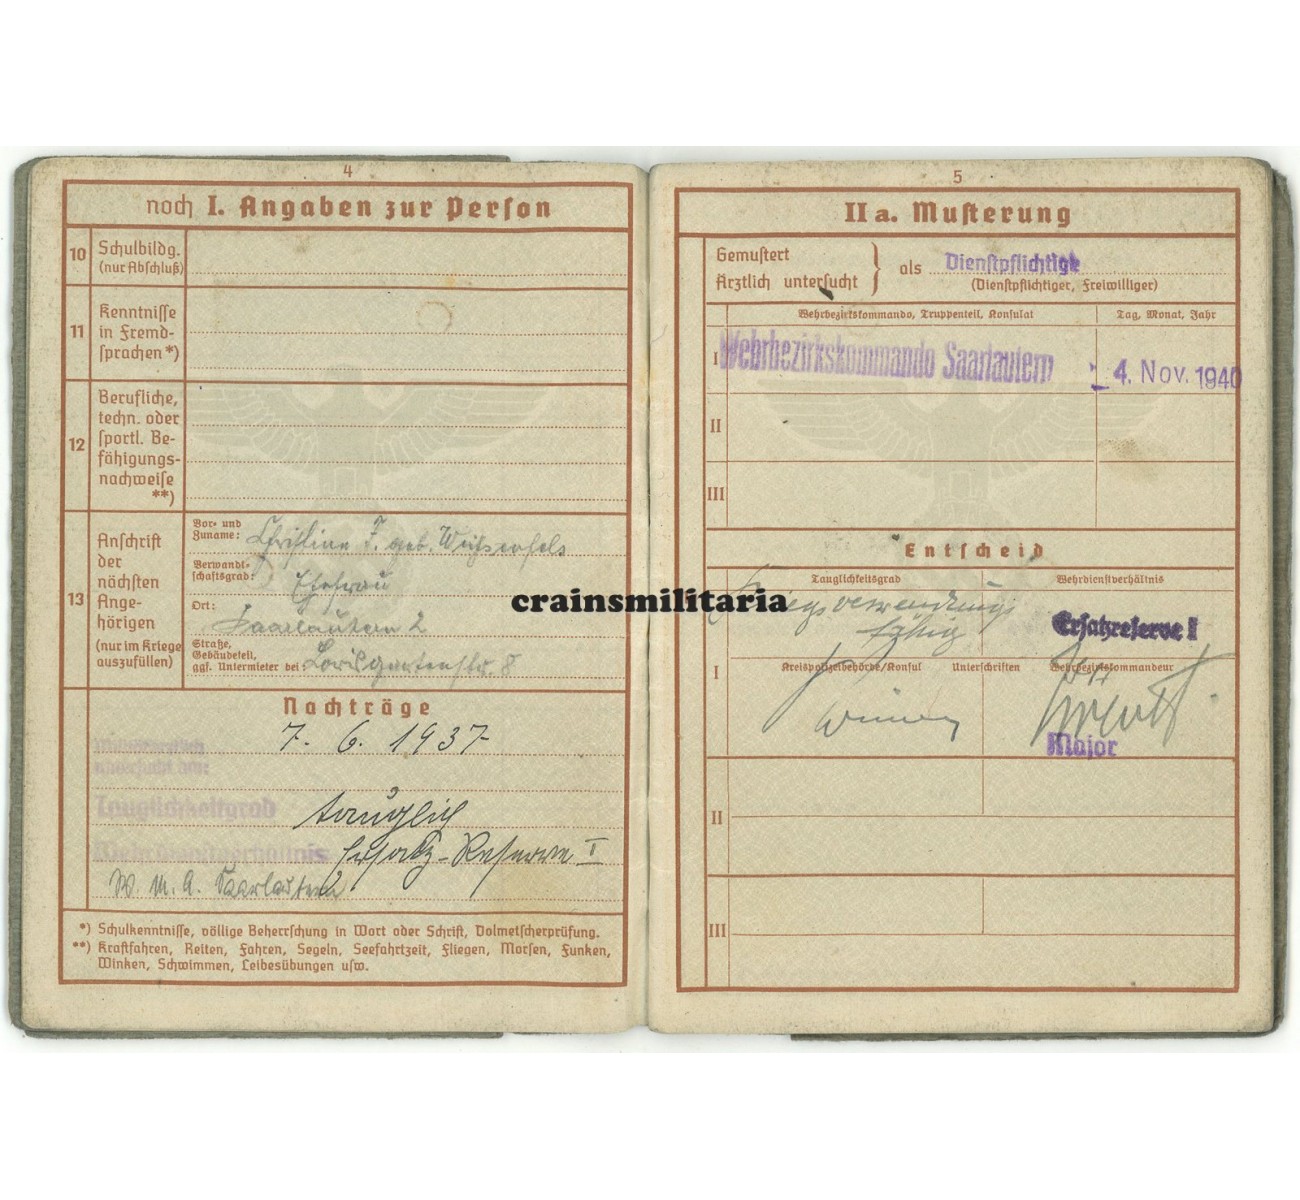 4
noch I. Angaben zur Person
10 Schulbildg.
(nur Abschluß)
11 Kenntnisse
in Fremd-
sprachen *)
12 Berufliche,
techn. oder
sportl. Be-
fähigungs-
nachweise
**)
13 Anschrift
der
nächsten
Ange-
hörigen
(nur im Kriege
auszufüllen)
Vor- und
Zuname: Christine F. geb. Weißenfels
Verwandt-
schaftsgrad: Ehefrau
Ort: Saarlautern 2
Straße,
Gebäudeteil,
ggf. Untermieter bei 8
Nachträge
7. 6. 1937
untersucht am:
Tauglichkeitgrad tauglich
Wehrdienstverhältnis Ersatz-Reserve I
W. M. A. Saarlautern
*) Schulkenntnisse, völlige Beherrschung in Wort oder Schrift, Dolmetscherprüfung.
**) Kraftfahren, Reiten, Fahren, Segeln, Seefahrtzeit, Fliegen, Morsen, Funken,
Winken, Schwimmen, Leibesübungen usw.
5
II a. Musterung
Gemustert
Ärztlich untersucht } als Dienstpflichtige
(Dienstpflichtiger, Freiwilliger)
Wehrbezirkskommando, Truppenteil, Konsulat
Tag, Monat, Jahr
I Wehrbezirkskommando Saarlautern - 4. Nov. 1940
II
III
Entscheid
Tauglichkeitsgrad
Wehrdienstverhältnis
Kriegsverwendungs
fähig
Ersatzreserve I
I
Kreispolizeibehörde/Konsul Unterschriften Wehrbezirkskommandeur
Major
II
III
crainsmilitaria